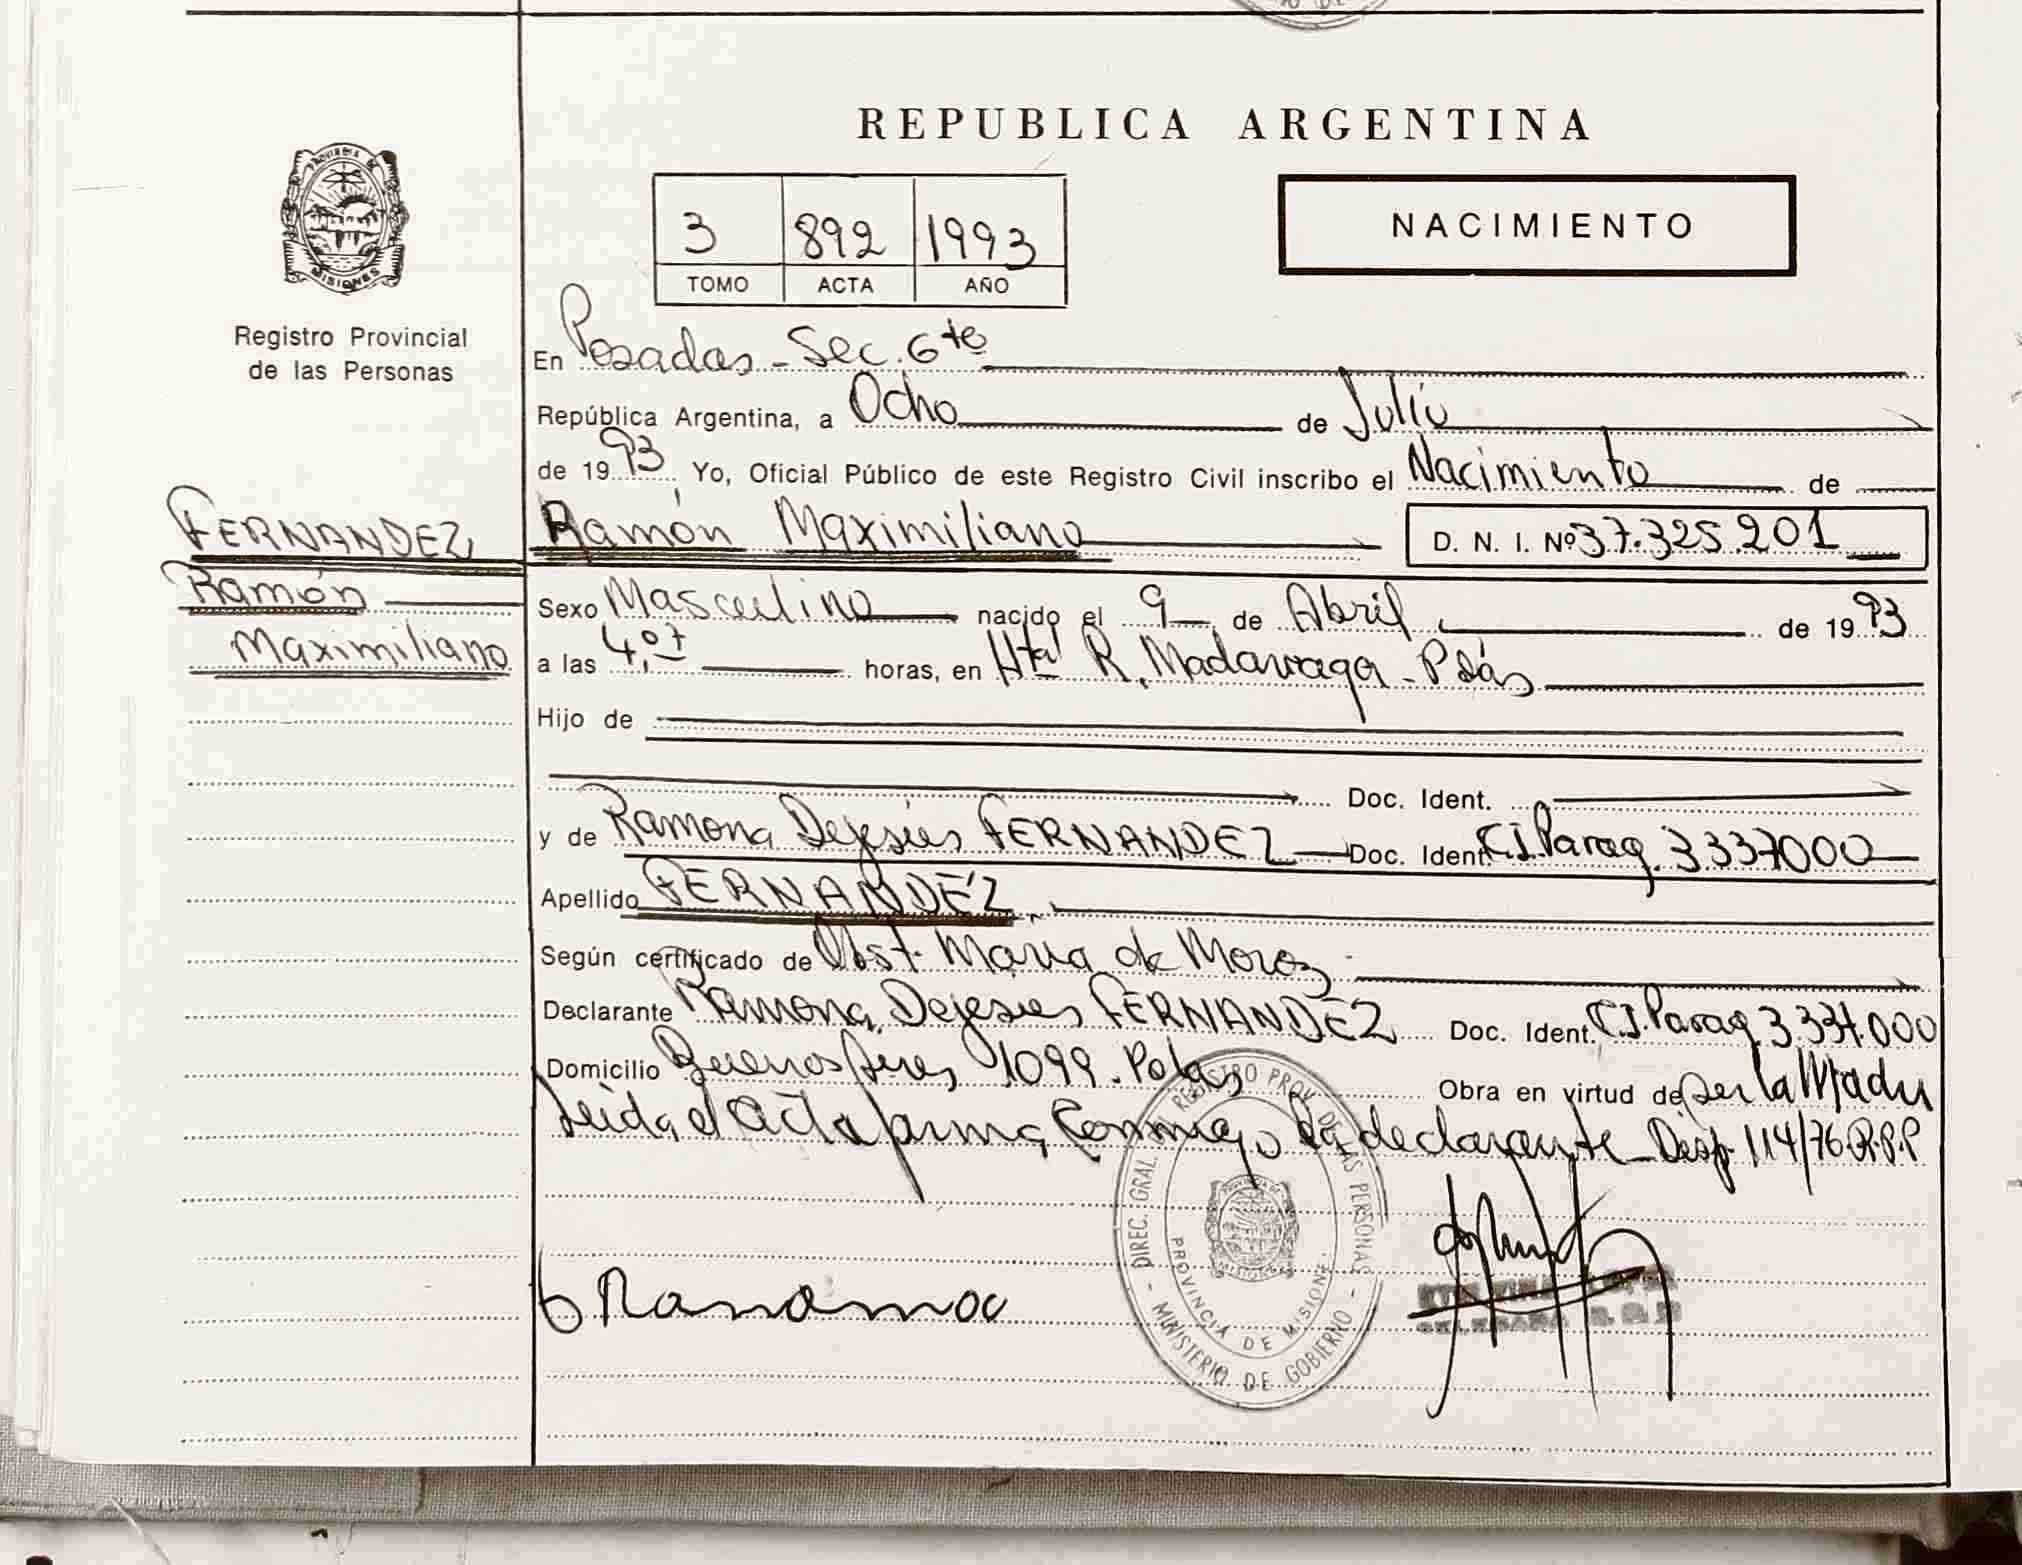 REPUBLICA ARGENTINA
PROVINCIA DE
MISIONES
Registro Provincial
de las Personas
3 892 1993
TOMO ACTA AÑO
NACIMIENTO
En Posadas - Sec. 6ta
República Argentina, a Ocho de Julio
de 1993, Yo, Oficial Público de este Registro Civil inscribo el Nacimiento de
FERNANDEZ
Ramón
Maximiliano
Ramón Maximiliano D. N. I. Nº 37.325.201
Sexo Masculino nacido el 9 de Abril de 1993
a las 4,07 horas, en Htal R. Madariaga - Pdas
Hijo de
Doc. Ident.
y de Ramona Dejesús FERNANDEZ Doc. Ident. C.I. Parag. 3337000
Apellido FERNANDEZ
Según certificado de Obst. Maria de Moroz
Declarante Ramona Dejesus FERNANDEZ Doc. Ident. C.I. Parag. 3.337.000
Domicilio Buenos Aires 1099. Pdas Obra en virtud de ser la Madre
Leida el Acta firma Conmigo la declarante - Disp. 114/76.R.P.P
DIREC. GRAL. DEL REGISTRO PROV. DE LAS PERSONAS
PROVINCIA DE MISIONES
- MINISTERIO DE GOBIERNO -